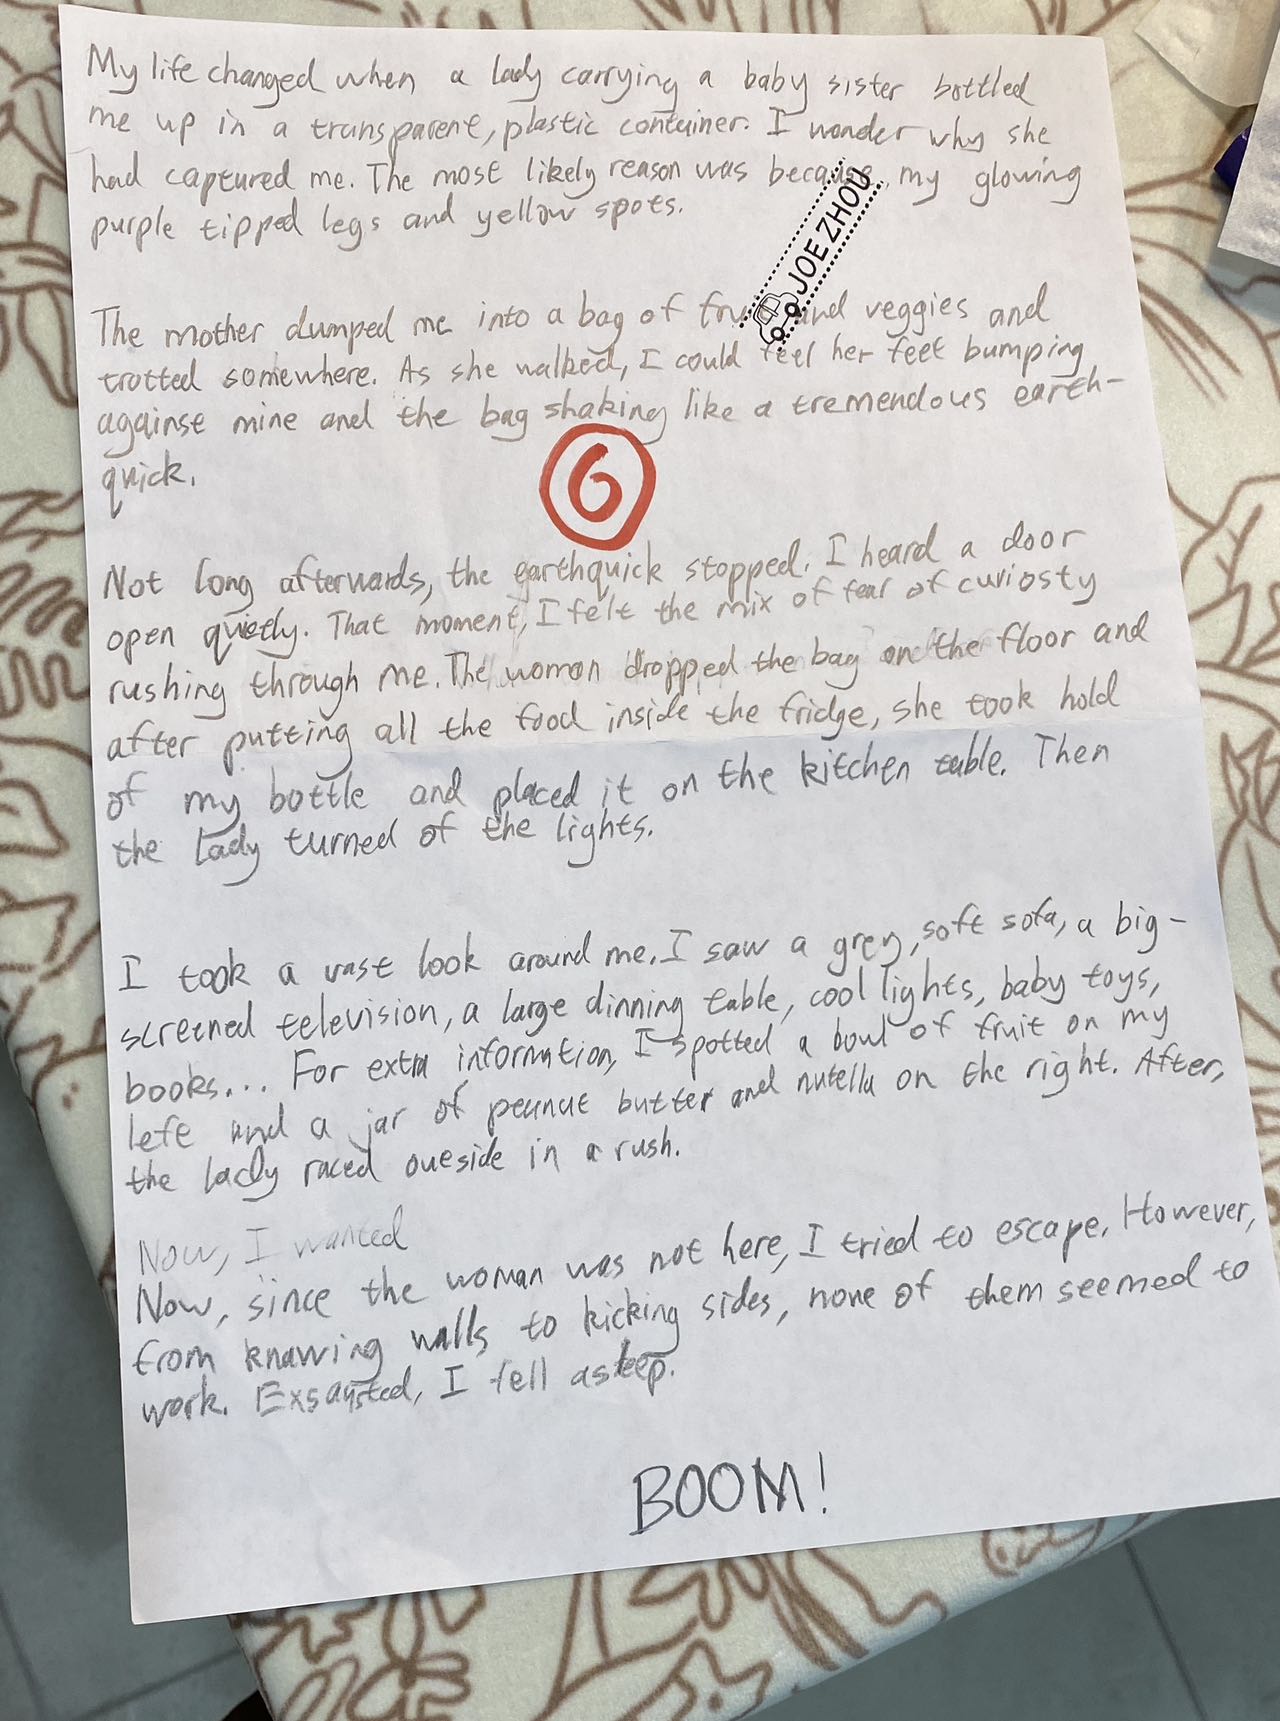 My life changed when a lady carrying a baby sister bottled
me up in a transparent, plastic container. I wonder why she
had captured me. The most likely reason was because my glowing
purple tipped legs and yellow spots.
JOE ZHOU
The mother dumped me into a bag of and veggies and
trotted somewhere. As she walked, I could feel her feet bumping
against mine and the bag shaking like a tremendous earth-
quick.
6
Not long afterwards, the earthquick stopped. I heard a door
open quietly. That moment, I felt the mix of fear of curiosty
rushing through me. The woman dropped the bag on the floor and
after putting all the food inside the fridge, she took hold
of my bottle and placed it on the kitchen table. Then
the lady turned of the lights.
I took a vast look around me. I saw a grey, soft sofa, a big-
screened television, a large dinning table, cool lights, baby toys,
books... For extra information, I spotted a bowl of fruit on my
left and a jar of peanut butter and nutella on the right. After,
the lady raced outside in a rush.
Now, I wanted
Now, since the woman was not here, I tried to escape. However,
from knawing walls to kicking sides, none of them seemed to
work. Exsaysted, I fell asleep.
BOOM!